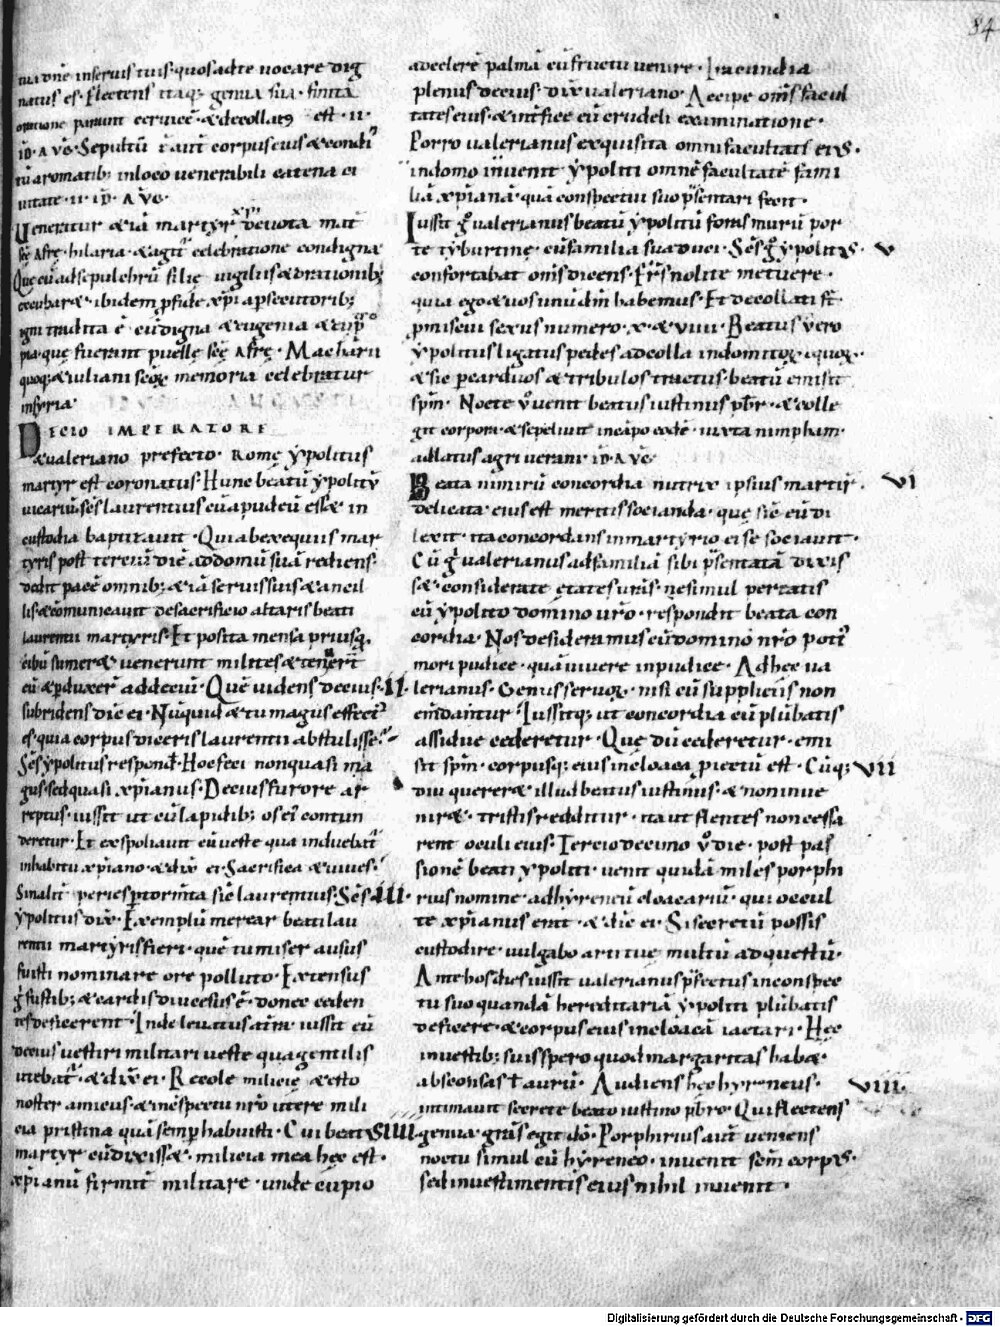 84
tui dñe inseruis tuis quos ad te uocare dig
natus es. Flectens itaq; genua sua. finita
oratione pariunt ceruicē. & decollatꝰ est. II.
ID. AVG. Sepultū ē aut̄ corpus eius & condi
tū aromatib; in loco uenerabili catena ci
uitate. II. ID. AVG.
Veneratur & iā martyr xp̄i deuota mat̄
sc̄ę Afrę. hilaria. & agit̄ celebratione condigna
Quę cū ad sepulchrū filię uigiliis & orationib;
excubar&. ibidem ꝓ fide xp̄i a ꝑsecutorib;
igni tradita ē. cū digna & eugenia & eup̄
pia. quę fuerunt puellę sc̄ę Afrę. Macharii
quoq; & iuliani scōꝝ memoria celebratur
in syria.
DECIO IMPERATORE
& ualeriano prefecto. Romę ẏpolitus
martyr est coronatus. Hunc beatū ẏpolitū
uicariū. sc̄s laurentius cū apud eū esset in
custodia baptizauit. Qui ab exequiis mar
tyris post terciū diē ad domū suā rediens.
dedit pacē omnib; & iā seruis suis & ancil
lis & cōmunicauit de sacrificio altaris beati
laurentii martyris. Et posita mensa priusq̄
cibū sumer& uenerunt milites & tenuert̄
eū & ꝑduxer̄ ad deciū. Quē uidens decius. II.
subridens dix̄ ei. Nūquid & tu magus effect̄
es. quia corpus diceris laurentii abstulisse.
Sc̄s ẏpolitus respond̄. Hoc feci non quasi ma
gus. sed quasi xp̄ianus. Decius furore ar
reptus. iussit ut cū lapidib; os ei contun
deretur. Et exspoliauit eū ueste qua induebat̄
in habitu xp̄iano. & dix̄ ei. Sacrifica & uiues.
Sin alit̄ peries ꝑ tormīta sic laurentius. Sc̄s III.
ẏpolitus dix̄. Exemplū merear beati lau
rentii martyris fieri. quē tu miser ausus
fuisti nominare ore polluto. Extensus
g̊ fustib; & cardis diu cęsus ē. donec ceden
tes deficerent. Inde leuatus a tr̄ra. iussit eū
decius uestiri militari ueste qua gentilis
utebat̄. & dix̄ ei. Recole milicię & esto
noster amicus. & in cōspectu nr̄o utere mili
cia pristina quā semp̄ habuisti. Cui beatꝰ IIII.
martyr cū dixiss&. milicia mea hęc est.
xp̄ianū firmit̄ militare. unde cupio
ad celerē palmā cū fructu uenire. Iracundia
plenus decius. dix̄ ualeriano. Accipe om̄s facul
tates eius & int̄fice eū crudeli examinatione.
Porro ualerianus exquisita omni facultate eiꝰ.
in domo inuenit ẏpoliti omnē facultatē fami
liā xp̄ianā. quā conspectui suo p̄sentari fecit.
Iussit g̊ ualerianus beatū ẏpolitū foras murū por
te tyburtinę. cū familia sua duci. Sc̄s g̊ ẏpolitꝰ. V
confortabat om̄s dicens. Fr̄s nolite metuere.
quia ego & uos unū dm̄ habemus. Et decollati st̄
ꝓmiscui sexus numero. X. & VIIII. Beatus ůo
ẏpolitus ligatus pedes ad colla indomitoꝝ equoꝝ.
& sic ꝑ carduos & tribulos tractus. beatū emisit
spm̄. Nocte ů uenit beatus iustinus pb̄r. & colle
git corpora. & sepeliuit in cāpo eodē. iuxta nimpham.
ad latus agri uerani. ID. AVG.
Beata nimirū concordia nutrix ipsius martiris. VI
delicata eius est meritis socianda. quę sic eū di
lexit. ita concordans in martyrio ei se sociauit.
Cū g̊ ualerianus ad familiā sibi p̄sentatā dixis
s&. considerate ętates ur̄as. ne simul pereatis
cū ẏpolito domino uro. respondit beata con
cordia. Nos desideramus cū domino nr̄o poti
mori pudice. quā uiuere inpudice. Ad hęc ua
lerianus. Genus seruoꝝ. nisi cū suppliciis non
emdantur. Iussitq; ut concordia cū plūbatis
assidue cederetur. Quę dū cederetur. emi
sit spm̄. corpusq; eius in cloacā ꝓiectū est. Cūq; VII
diu querer& illud beatus iustinus. & non inue
nir&. tristis redditur. ita ut flentes non cessa
rent oculi eius. Tercio decimo ů die. post pas
sionē beati ẏpoliti. uenit quidā miles porphi
rius nomine ad hyreneū cloacariū. qui occul
te xp̄ianus erat. & dix̄ ei. Si secretū possis
custodire. uulgabo arti tuę multū ad questū.
Ante hos dies iussit ualerianus p̄fectus in conspec
tu suo quandā hereditariā ẏpoliti plūbatis
deficere. & corpus eius in cloacā iactari. Hęc
in uestib; suis spero quod margaritas hab&
absconsas ł aurū. Audiens hęc hyreneus. VIII.
intimauit secrete beato iustino pb̄ro. Qui flectens
genua gr̄as egit dō. Porphirius aut̄ ueniens
noctu simul cū hyreneo. inuenit scm̄ corpꝰ.
sed in uestimentis eius nihil inuenit.
Digitalisierung gefördert durch die Deutsche Forschungsgemeinschaft - DFG